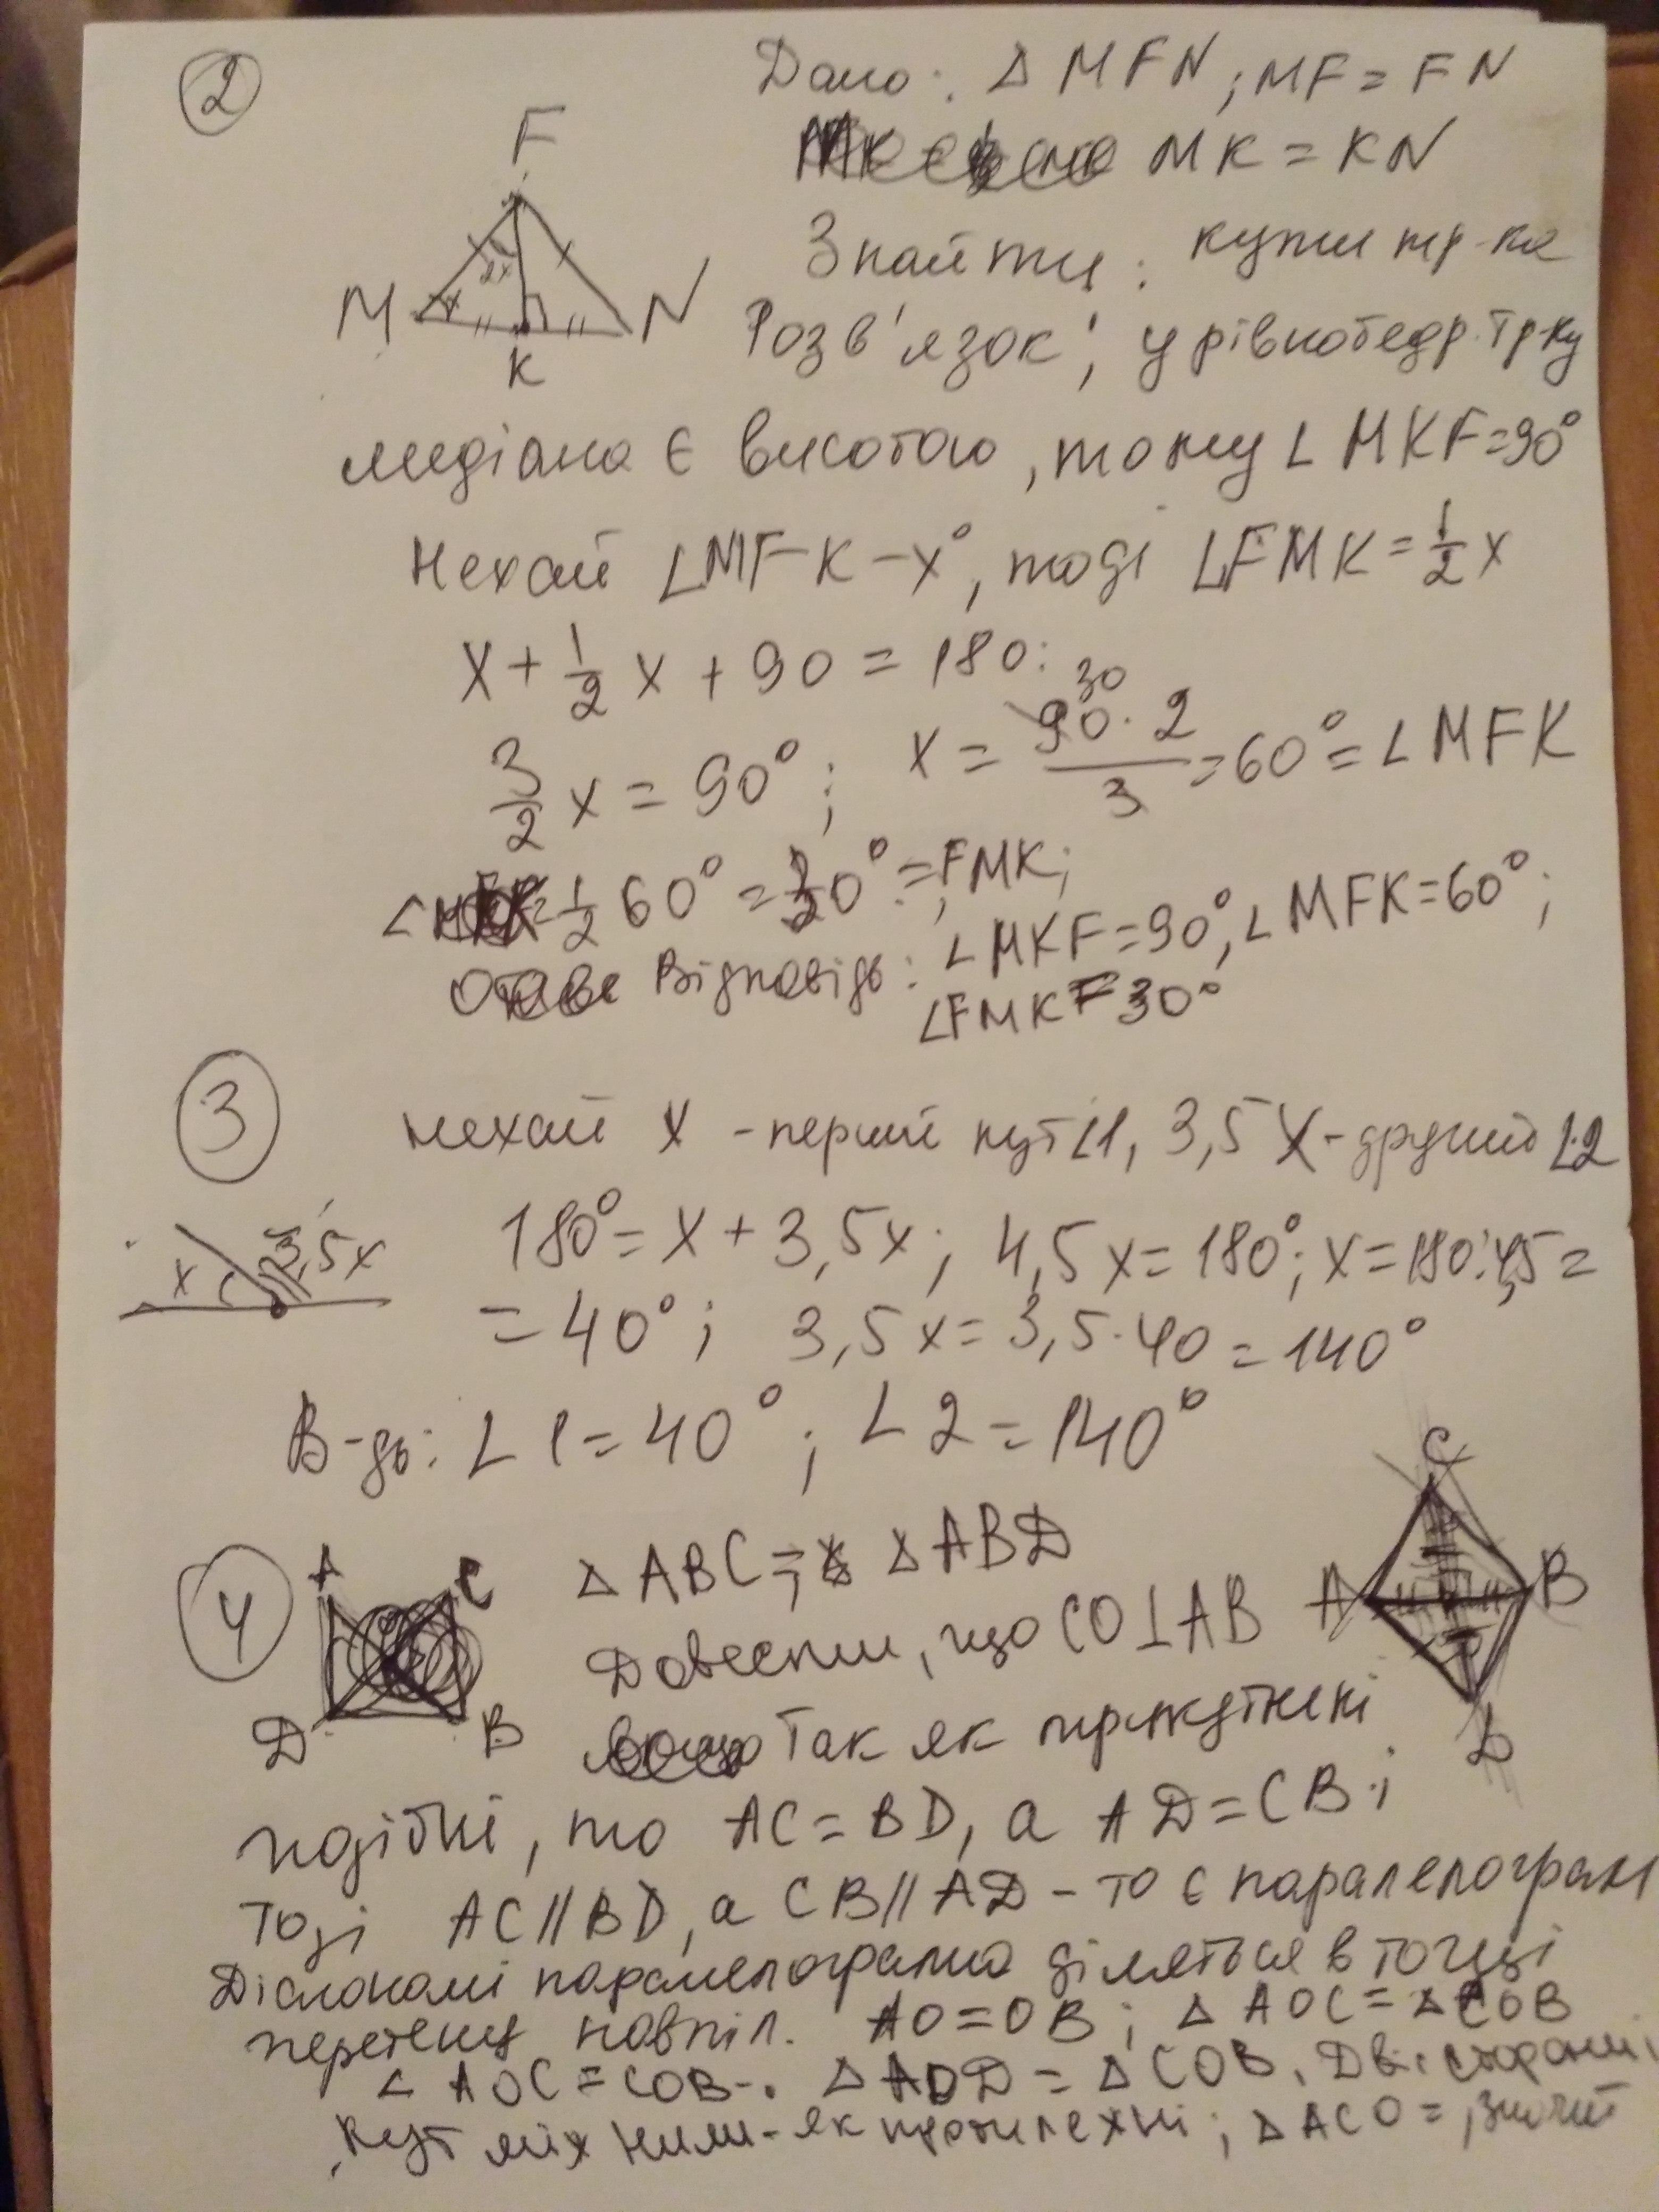 2
Дано: Δ MFN; MF = FN
MK = KN
Знайти: кути тр-ка
F
2x
M x N
K
Розв'язок: у рівнобедр. тр-ку
медіана є висотою, тому ∠ MKF=90°
Нехай ∠MFK – x°, тоді ∠FMK = 1/2 x
x + 1/2 x + 90 = 180:
3/2 x = 90°; x = 90·2/3 = 60° = ∠ MFK
30
1/2 60° = 30° = FMK;
Відповідь: ∠ MKF=90°, ∠ MFK=60°;
∠FMK = 30°
3
Нехай x – перший кут ∠1, 3,5x – другий ∠2
x 3,5x
180° = x + 3,5x; 4,5x = 180°; x = 180:4,5 =
= 40°; 3,5x = 3,5·40 = 140°
В-дь: ∠1 = 40°; ∠2 = 140°
4
A C
D B
Δ ABC = Δ ABD
Довести, що CO⊥AB
C
A B
D
Так як трикутнкні
подібні, то AC = BD, а AD = CB;
Тоді AC || BD, а CB || AD – то є паралелограм
Діагоналі паралелограма діляться в точці
перетену навпіл. AO = OB; Δ AOC = Δ COB
∠ AOC = COB. Δ AOD = Δ COB. Дві сторони і
кут між ними – як протилежні; Δ ACO =, значит